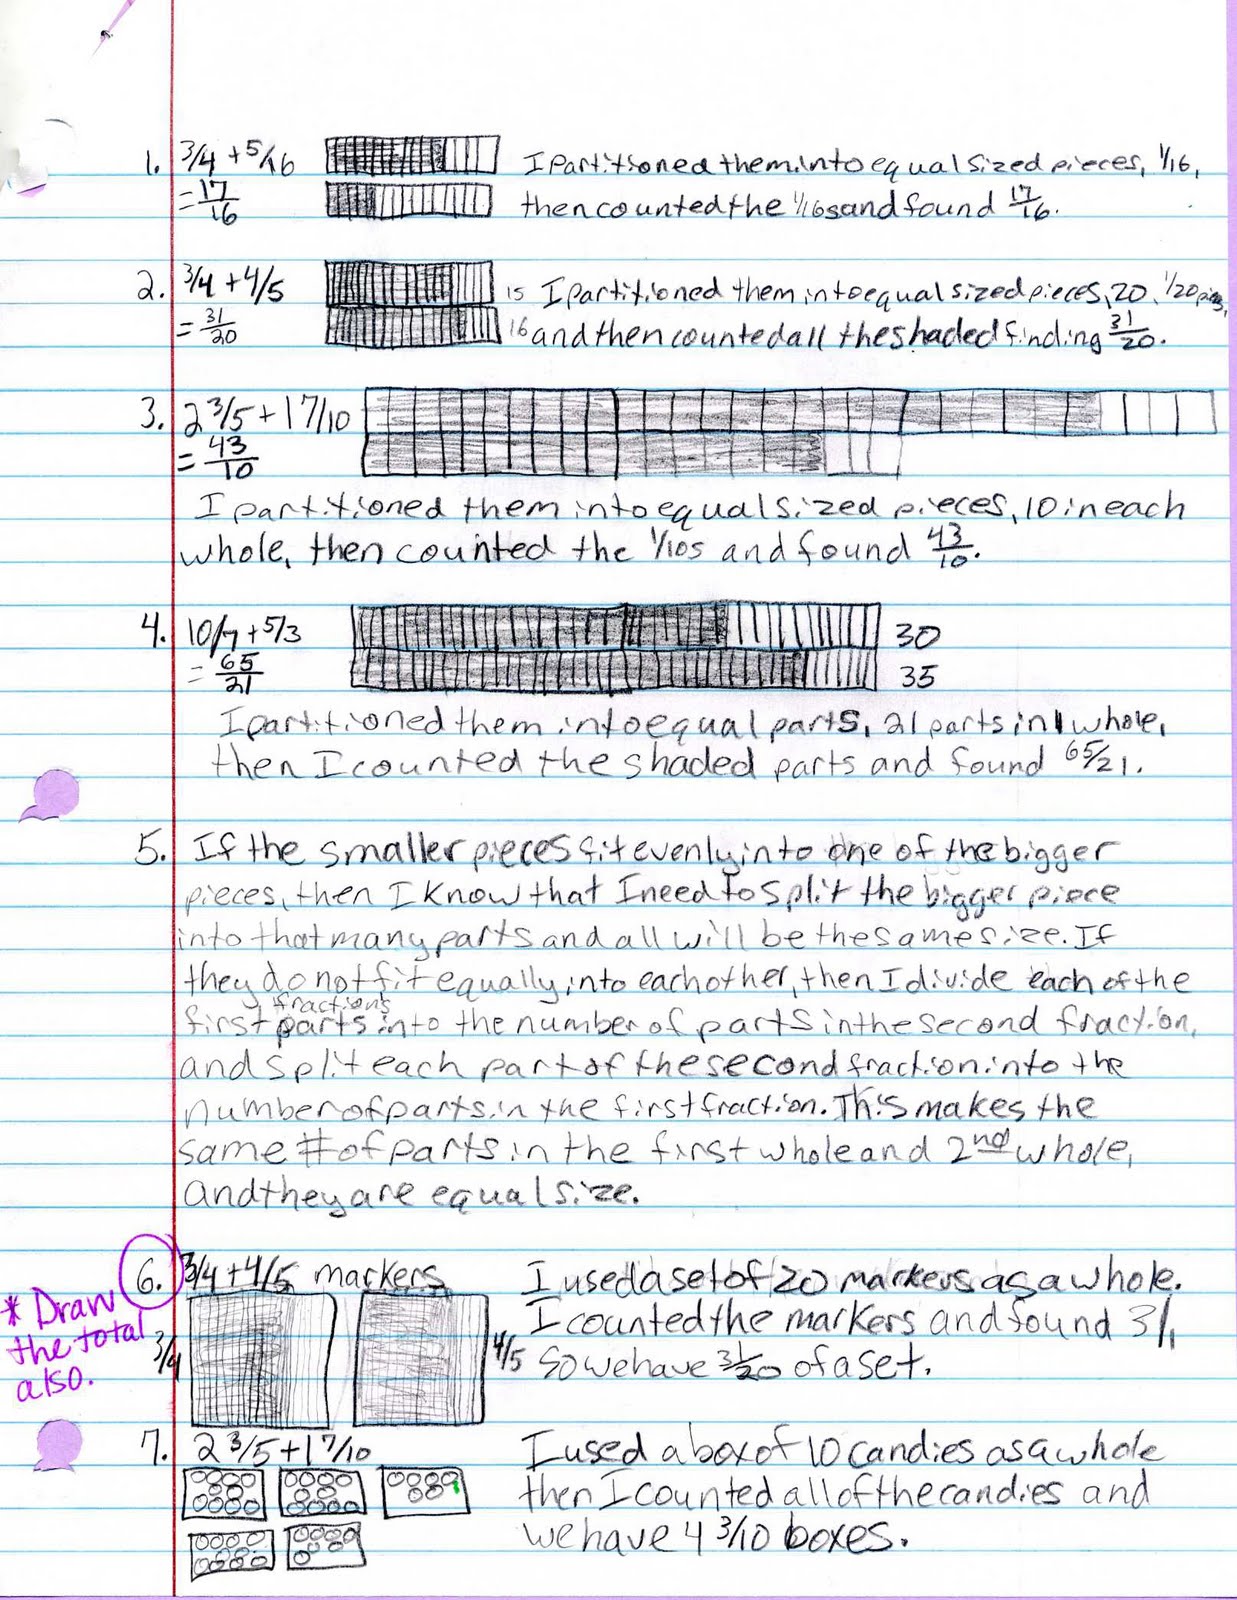 1. 3/4 + 5/16 I partitioned them into equal sized pieces, 1/16,
= 17/16 then counted the 1/16s and found 17/16.
2. 3/4 + 4/5 15 I partitioned them into equal sized pieces, 20, 1/20
= 31/20 16 and then counted all the shaded finding 31/20.
3. 2 3/5 + 1 7/10
= 43/10
I partitioned them into equal sized pieces, 10 in each
whole, then counted the 1/10s and found 43/10.
4. 10/7 + 5/3 30
= 65/21 35
I partitioned them into equal parts, 21 parts in 1 whole,
then I counted the shaded parts and found 65/21.
5. If the smaller pieces fit evenly into one of the bigger
pieces, then I know that I need to split the bigger piece
into that many parts and all will be the same size. If
they do not fit equally into each other, then I divide each of the
fractions
first parts into the number of parts in the second fraction,
and split each part of the second fraction into the
number of parts in the first fraction. This makes the
same # of parts in the first whole and 2nd whole,
and they are equal size.
6. 3/4 + 4/5 markers I used a set of 20 markers as a whole.
* Draw the total also.
3/4 4/5 I counted the markers and found 31,
so we have 31/20 of a set.
7. 2 3/5 + 1 7/10 I used a box of 10 candies as a whole
then I counted all of the candies and
we have 4 3/10 boxes.